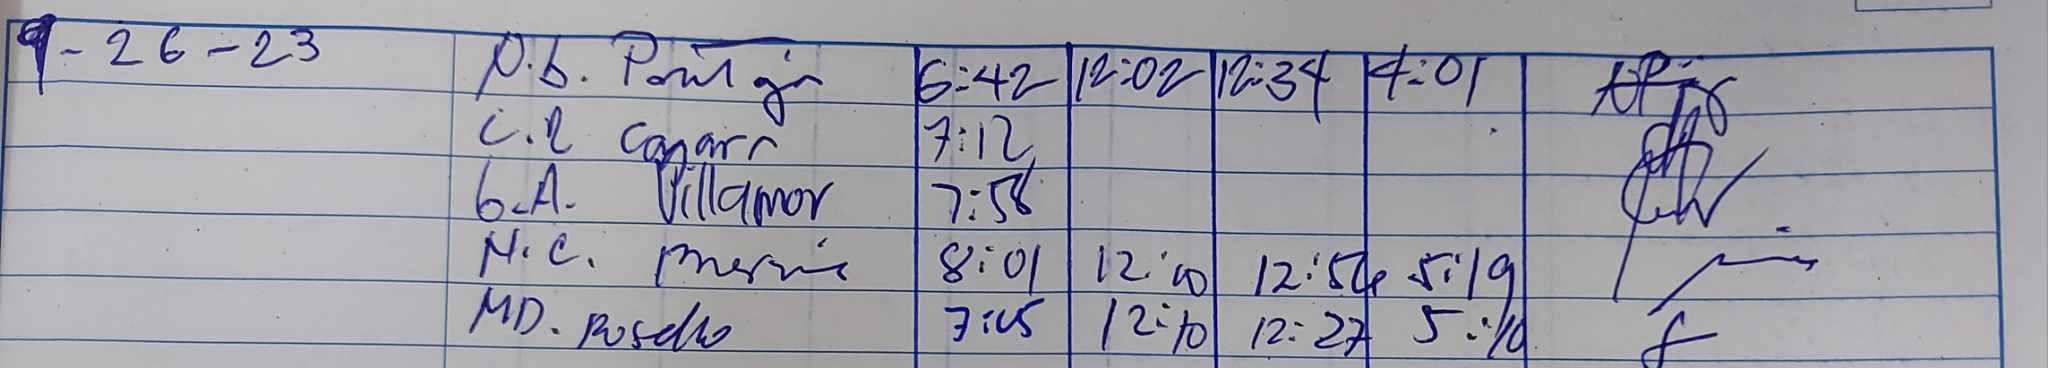 9-26-23 N.b. 6:42 12:02 12:34 4:01
C.R 7:12
G.A. Villamor 7:58
N.C. 8:01 12:10 12:54 5:19
MD. Rosello 7:45 12:10 12:27 5:10